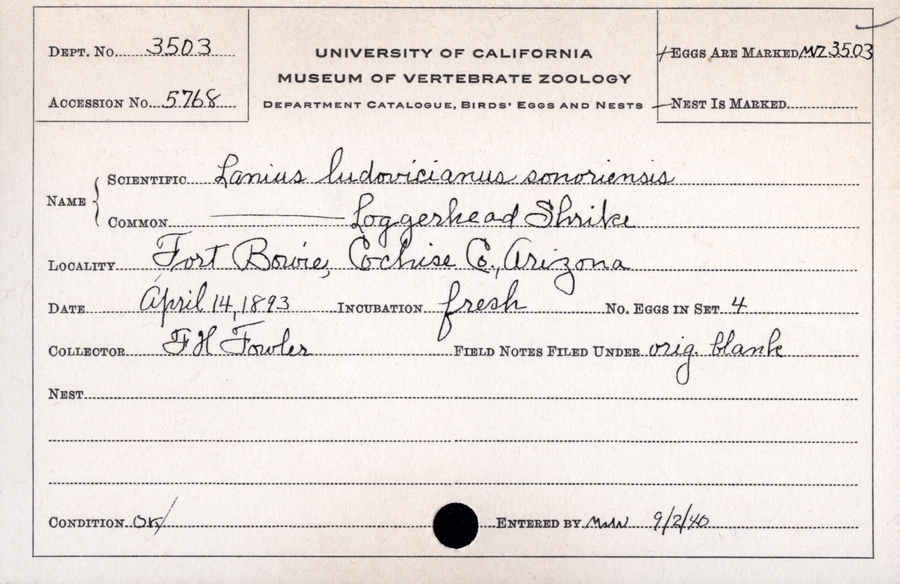 DEPT. No. 3503
ACCESSION No. 5768
UNIVERSITY OF CALIFORNIA
MUSEUM OF VERTEBRATE ZOOLOGY
DEPARTMENT CATALOGUE, BIRDS' EGGS AND NESTS
EGGS ARE MARKED MVZ 3503
NEST IS MARKED
NAME
SCIENTIFIC Lanius ludovicianus sonoriensis
COMMON Loggerhead Shrike
LOCALITY Fort Bowie, Cochise Co., Arizona
DATE April 14, 1893 INCUBATION fresh No. EGGS IN SET 4
COLLECTOR F H Fowler FIELD NOTES FILED UNDER orig. blank
NEST
CONDITION OK ENTERED BY 9/2/40